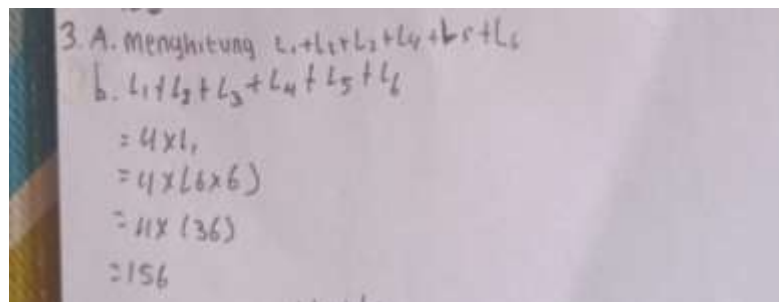 3. A. Menghitung L1+L2+L3+L4+L5+L6
b. L1+L2+L3+L4+L5+L6
= 4xL1
= 4x(6x6)
= 4x (36)
= 156